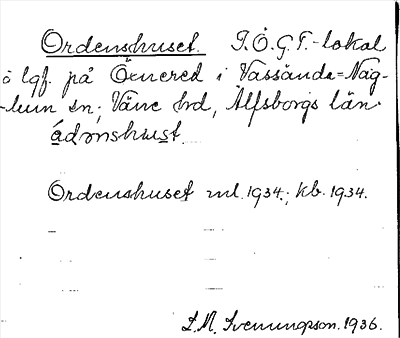 Ordenshuset. I.O.G.T.-lokal
å lgf. på Öxnered i Vassända=Nag-
-lum sn; Väne hrd, Älfsborgs län.
Ordenshuset ml. 1934.; kb. 1934.
L.M. Svenungson. 1936.